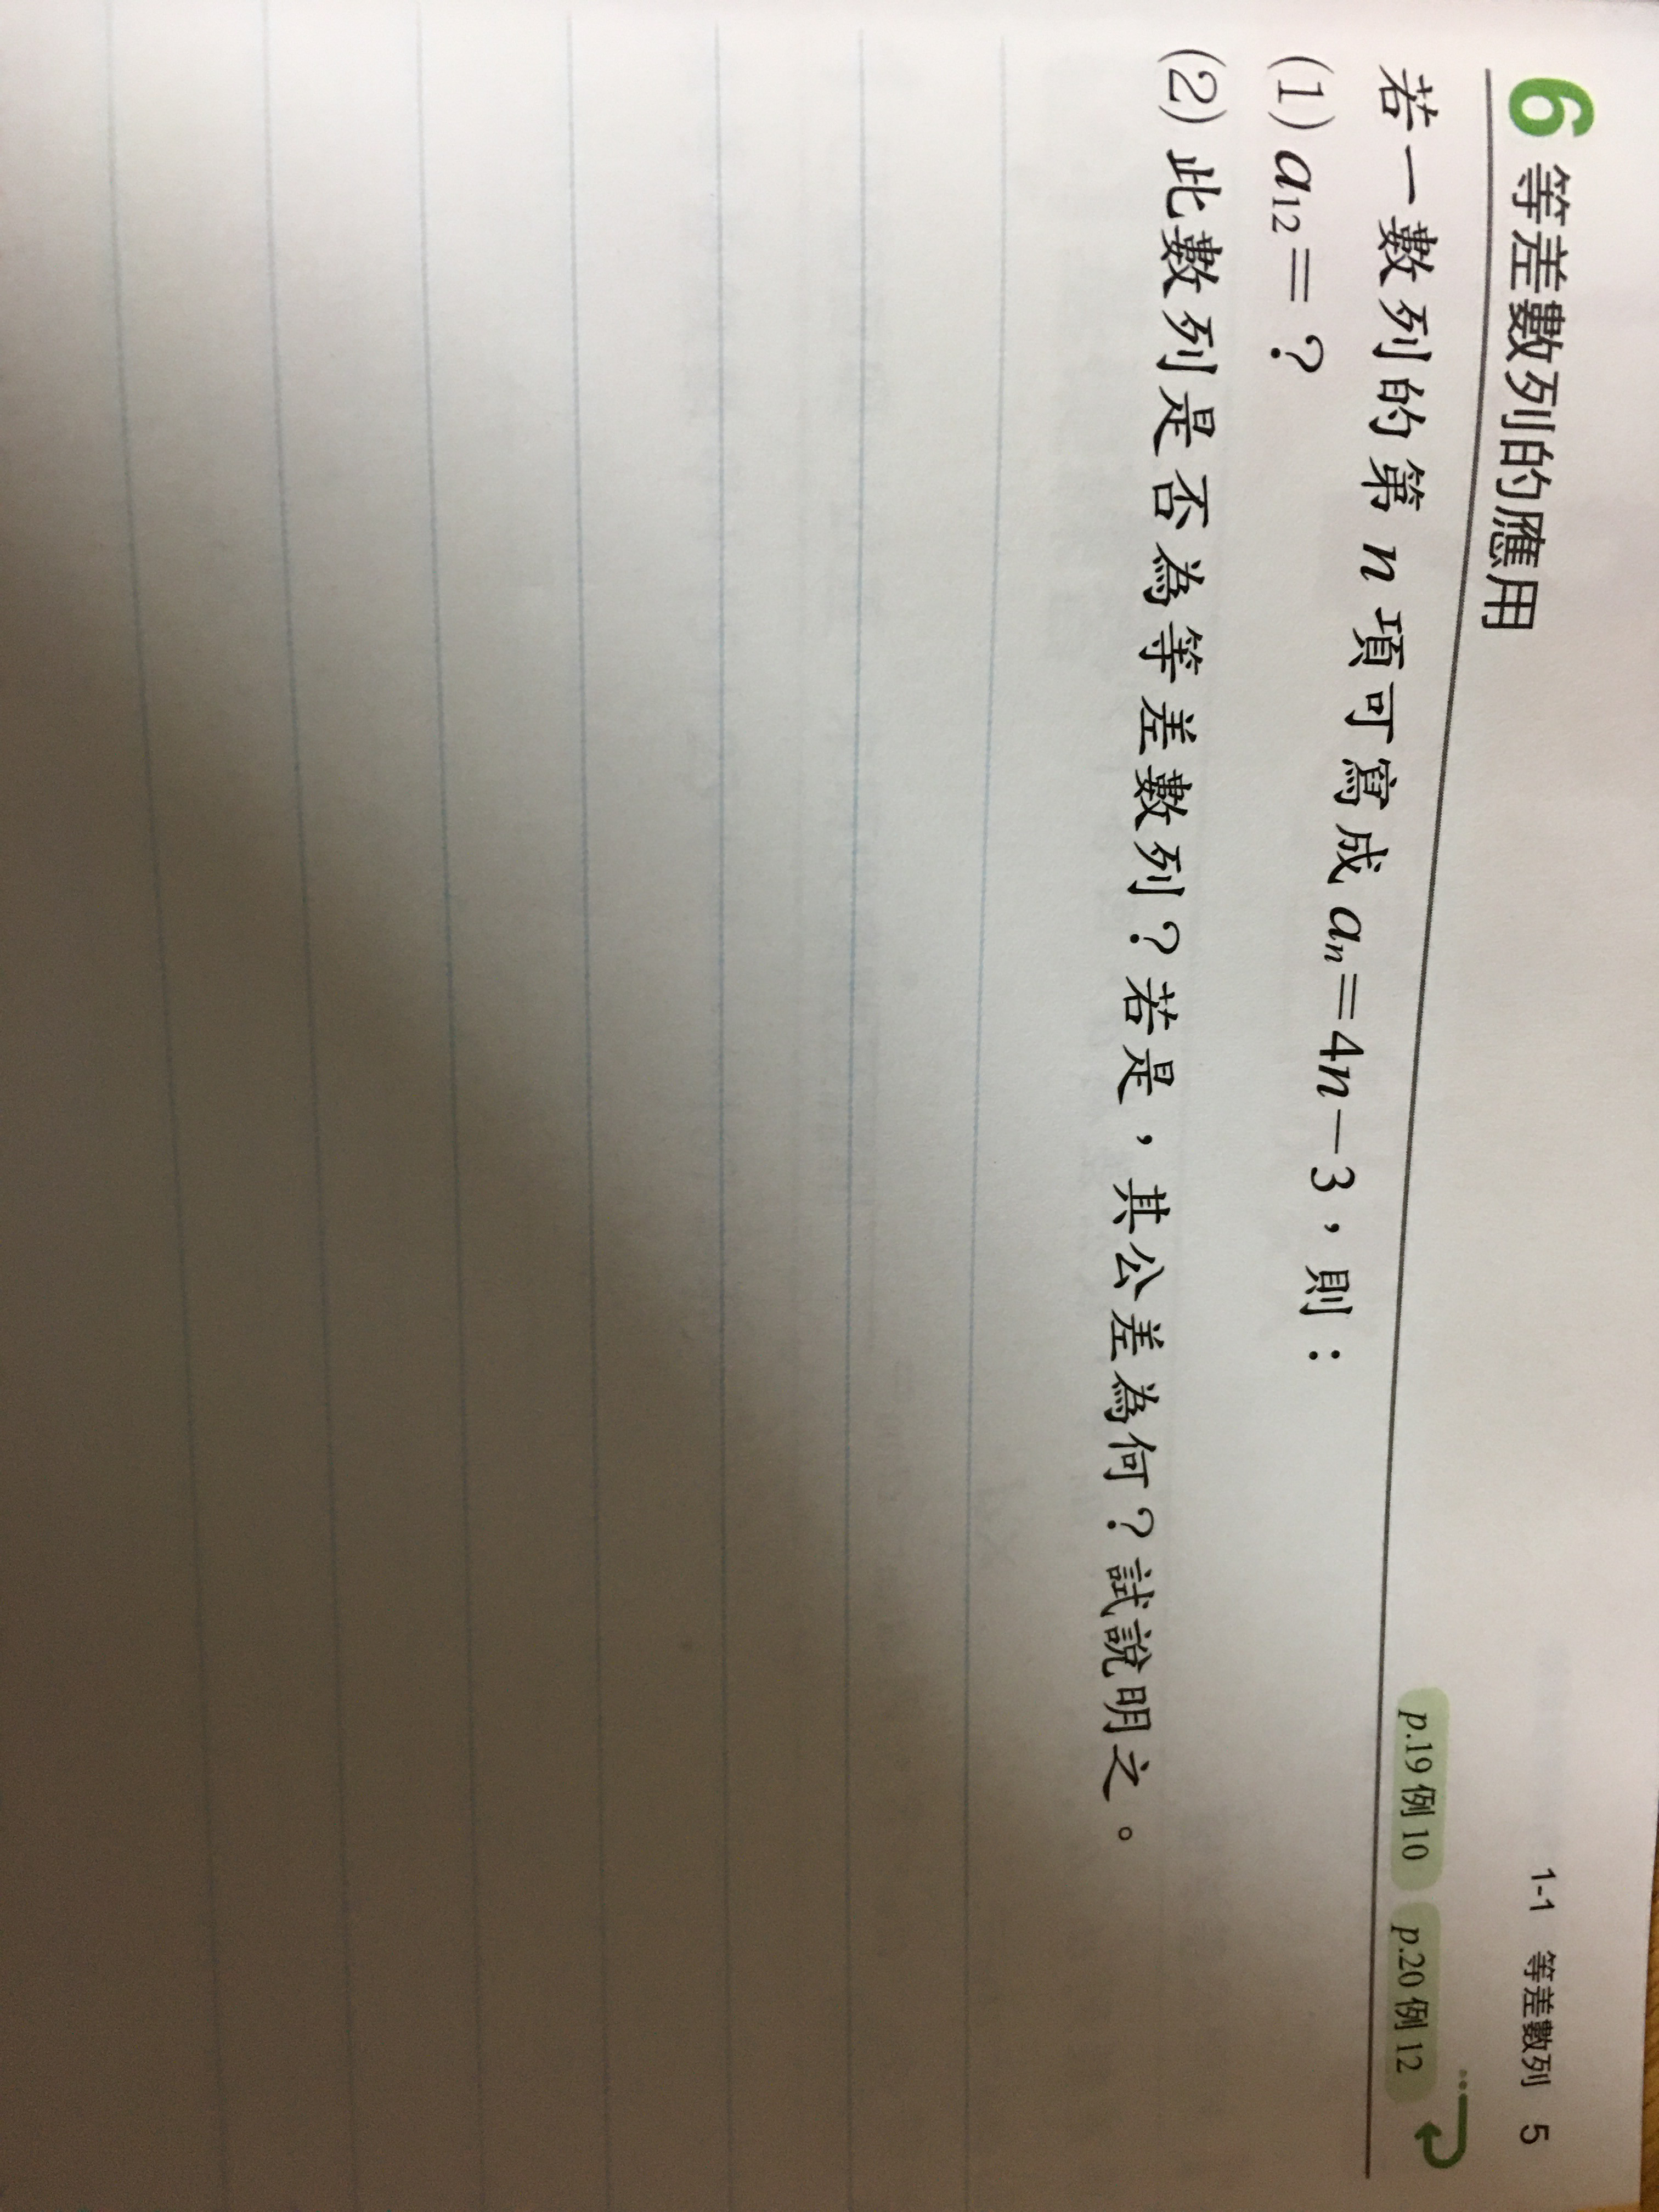 1-1 等差數列 5
6 等差數列的應用
p.19 例 10 p.20 例 12
若一數列的第 n 項可寫成 aₙ=4n−3,則:
(1) a₁₂=?
(2) 此數列是否為等差數列?若是,其公差為何?試說明之。